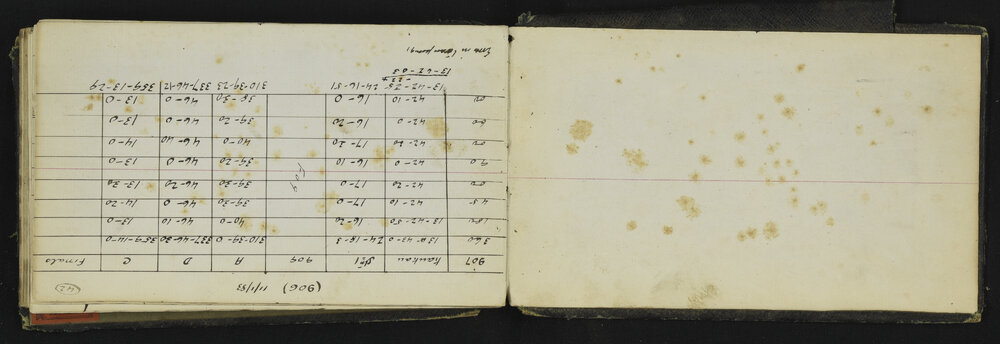 (906) 11/1/83 42
907 Kaukau 909 A D C Finals
360 13-43-0 24-18-5 310-39-0 337-46-30 359-14-0
180 13-42-50 16-20 40-0 46-10 13-0
45 42-10 17-0 39-30 46-0 14-20
42-20 17-0 39-30 46-20 13-30
Fog
90 42-0 16-10 39-20 46-0 13-0
42-20 17-20 40-0 46-40 14-0
42-0 16-20 39-20 46-0 13-0
42-10 16-0 38-30 46-0 13-0
13-42-25 24-16-51 310-39-23 337-46-12 359-13-29
-22
13-42-03
Error in